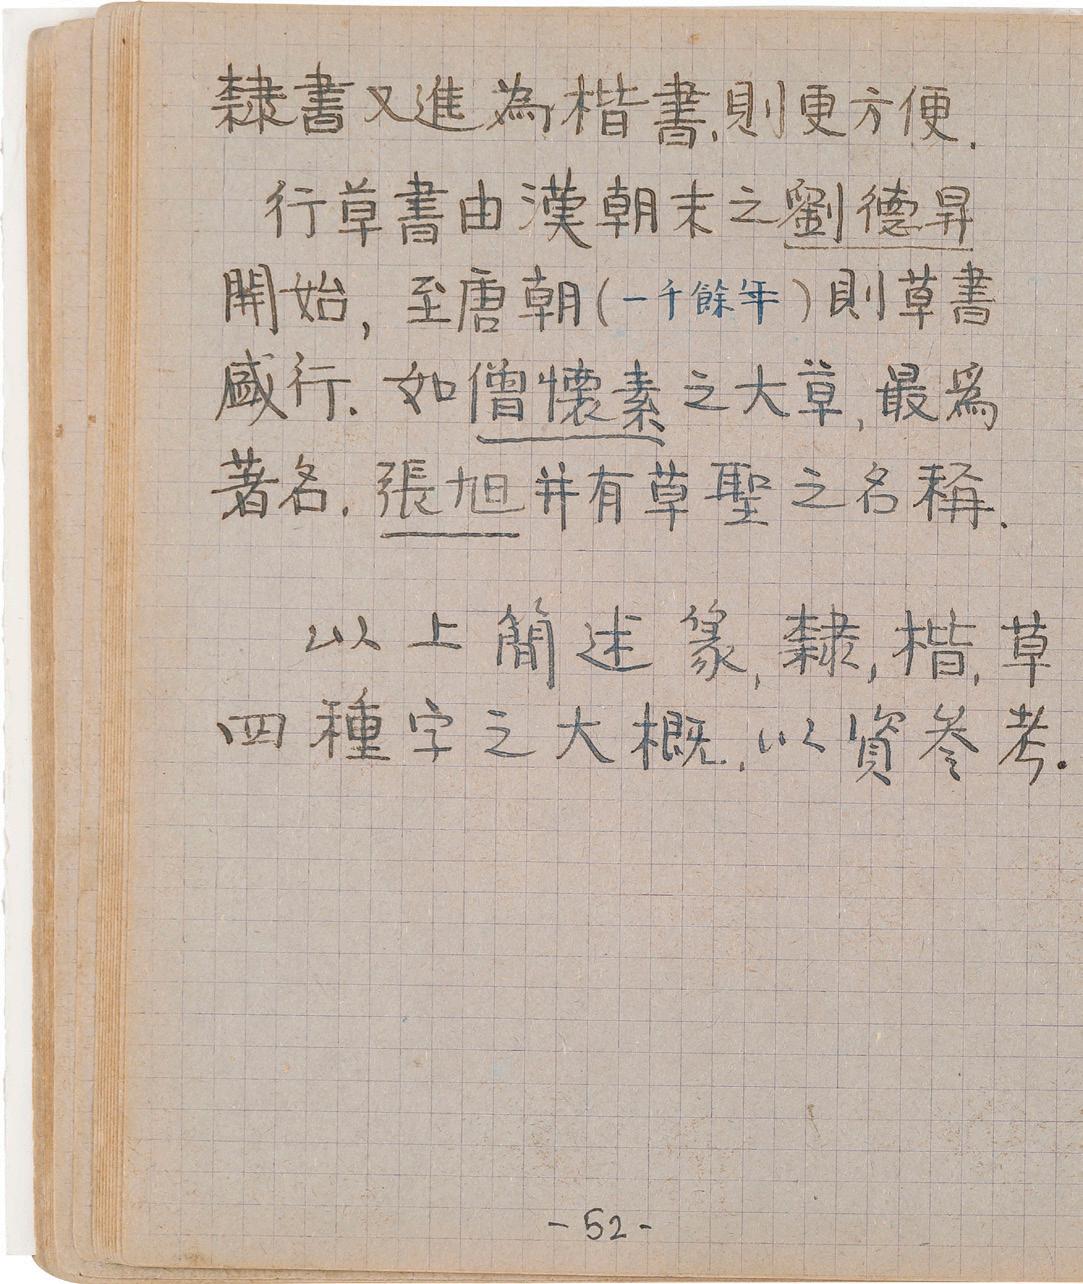 隸書又進為楷書,則更方便.
行草書由漢朝末之劉德昇
開始,至唐朝(一千餘年)則草書
盛行.如僧懷素之大草,最爲
著名.張旭并有草聖之名稱.
以上簡述篆,隸,楷,草
四種字之大概.,以資參考.
-52-